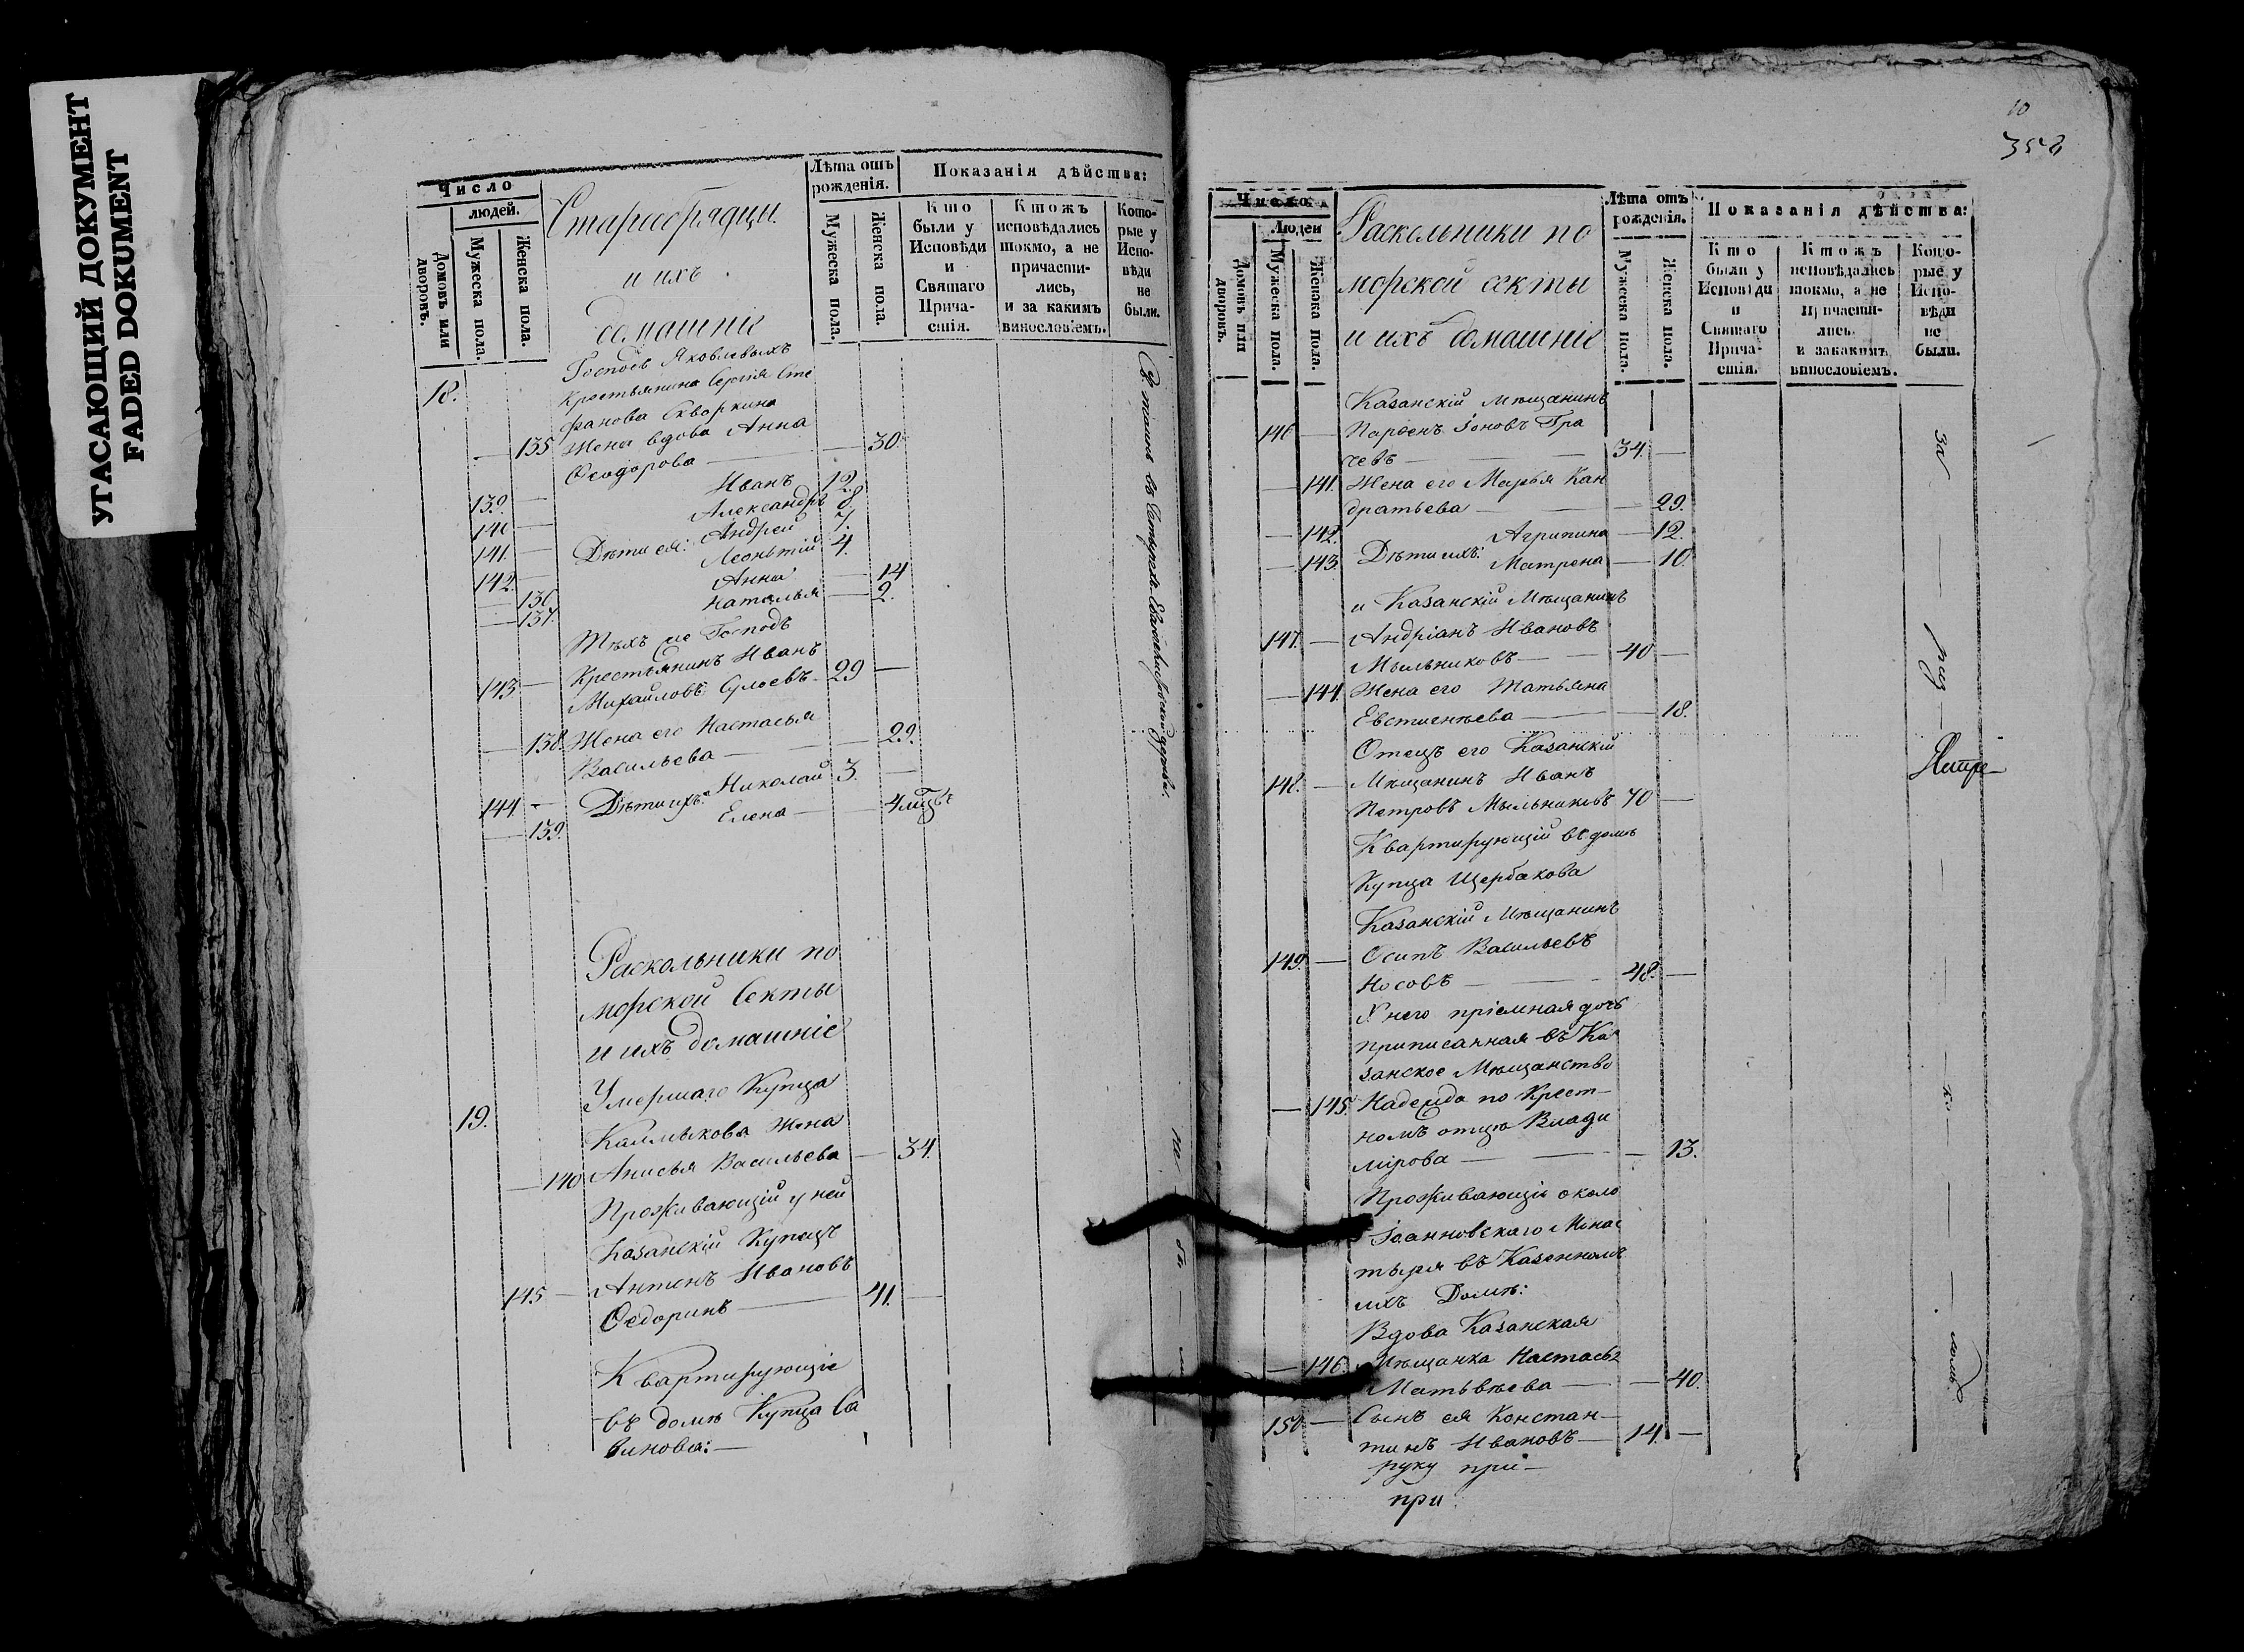 УГАСАЮЩИЙ ДОКУМЕНТ
FADED DOKUMENT
Число
людей.
Домовъ или дворовъ.
Мужеска пола.
Женска пола.
Старообрядцы
и ихъ
домашніе
Лѣта отъ рожденія.
Мужеска пола.
Женска пола.
Показанія дѣйства:
Кто были у Исповѣди и Святаго Прича-стія.
Ктожъ исповѣдались токмо, а не причасти-лись, и за какимъ винословіемъ.
Кото-рые у Испо-вѣди не были.
18. Господъ Яковлевыхъ
крестьянина Сергія Сте
фанова Скворкина
135 Жена вдова Анна
Ѳеодорова — 30.
139. — Иванъ 12.
140 — Александръ 8.
141. — Дѣти ея: Андрей 7.
142. — Леонтій 4.
— 136 Анна — 14
— 137. Наталья — 2.
Тѣхъ же Господъ
143 — Крестьянинъ Иванъ
Михайловъ 29 —
— 138. Жена его Настасья
Васильева — 29.
144. — Дѣти ихъ: Николай 3. —
— 139. Елена — 4 мцъ
Раскольники по
морской Секты
и ихъ домашніе
19. Умершаго Купца
Калмыкова Жена
— 140 Анисья Васильева — 34.
Проживающій у ней
Казанскій Купецъ
145 — Антонъ Ивановъ
Ѳедоринъ — 41. —
Квартирующіе
въ домѣ Купца Са
винова: —
10
358
Число
Людей
Домовъ или дворовъ.
Мужеска пола.
Женска пола.
Раскольники по
морской секты
и ихъ домашніе
Лѣта отъ рожденія.
Мужеска пола.
Женска пола.
Показанія дѣйства:
Кто были у Исповѣди и Святаго Прича-стія.
Ктожъ исповѣдались токмо, а не Причасти-лись. и закакимъ винословіемъ.
Кото-рые у Испо-вѣди не были.
Казанскій мѣщанинъ
146 — Парѳенъ Іоновъ Гра
чевъ — 34. —
— 141. Жена его Марья Кан
дратьева — 29.
— 142. Агрипина — 12.
— 143. Дѣти ихъ: Матрена — 10.
и Казанскій Мѣщанинъ
147. — Андріанъ Ивановъ
Мыльниковъ — 40 —
— 144. Жена его Татьяна
Евстигнѣева — 18.
Отецъ его Казанскій
148. — Мѣщанинъ Иванъ
Петровъ Мыльниковъ 70 —
Квартирующій въ домѣ
Купца Щербакова
Казанскій Мѣщанинъ
149. — Осипъ Васильевъ
Носовъ — 48. —
У него пріемная дочь
приписанная въ Ка
занское Мѣщанство
— 145. Надежда по Крест-
номъ отцѣ Влади
мірова — 13.
Проживающіе около
Іоанновскаго Монас
тыря въ Казенномъ
ихъ Домѣ:
Вдова Казанская
— 146. Мѣщанка Настасья
Матьвѣева — 40.
150 — Сынъ ея Констан-
тинъ Ивановъ — 14. —
руку при-
при